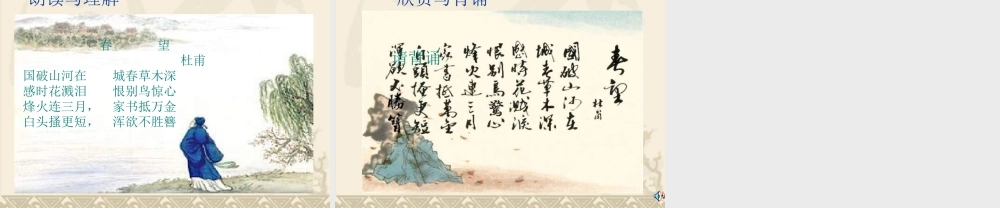 朗读与理解
春 望
杜甫
国破山河在 城春草木深
感时花溅泪 恨别鸟惊心
烽火连三月， 家书抵万金
白头搔更短， 浑欲不胜簪
欣赏与背诵
请背诵
春望
杜甫
國破山河在
城春草木深
感時花濺淚
恨別鳥驚心
烽火連三月
家書抵萬金
白頭搔更短
渾欲不勝簪